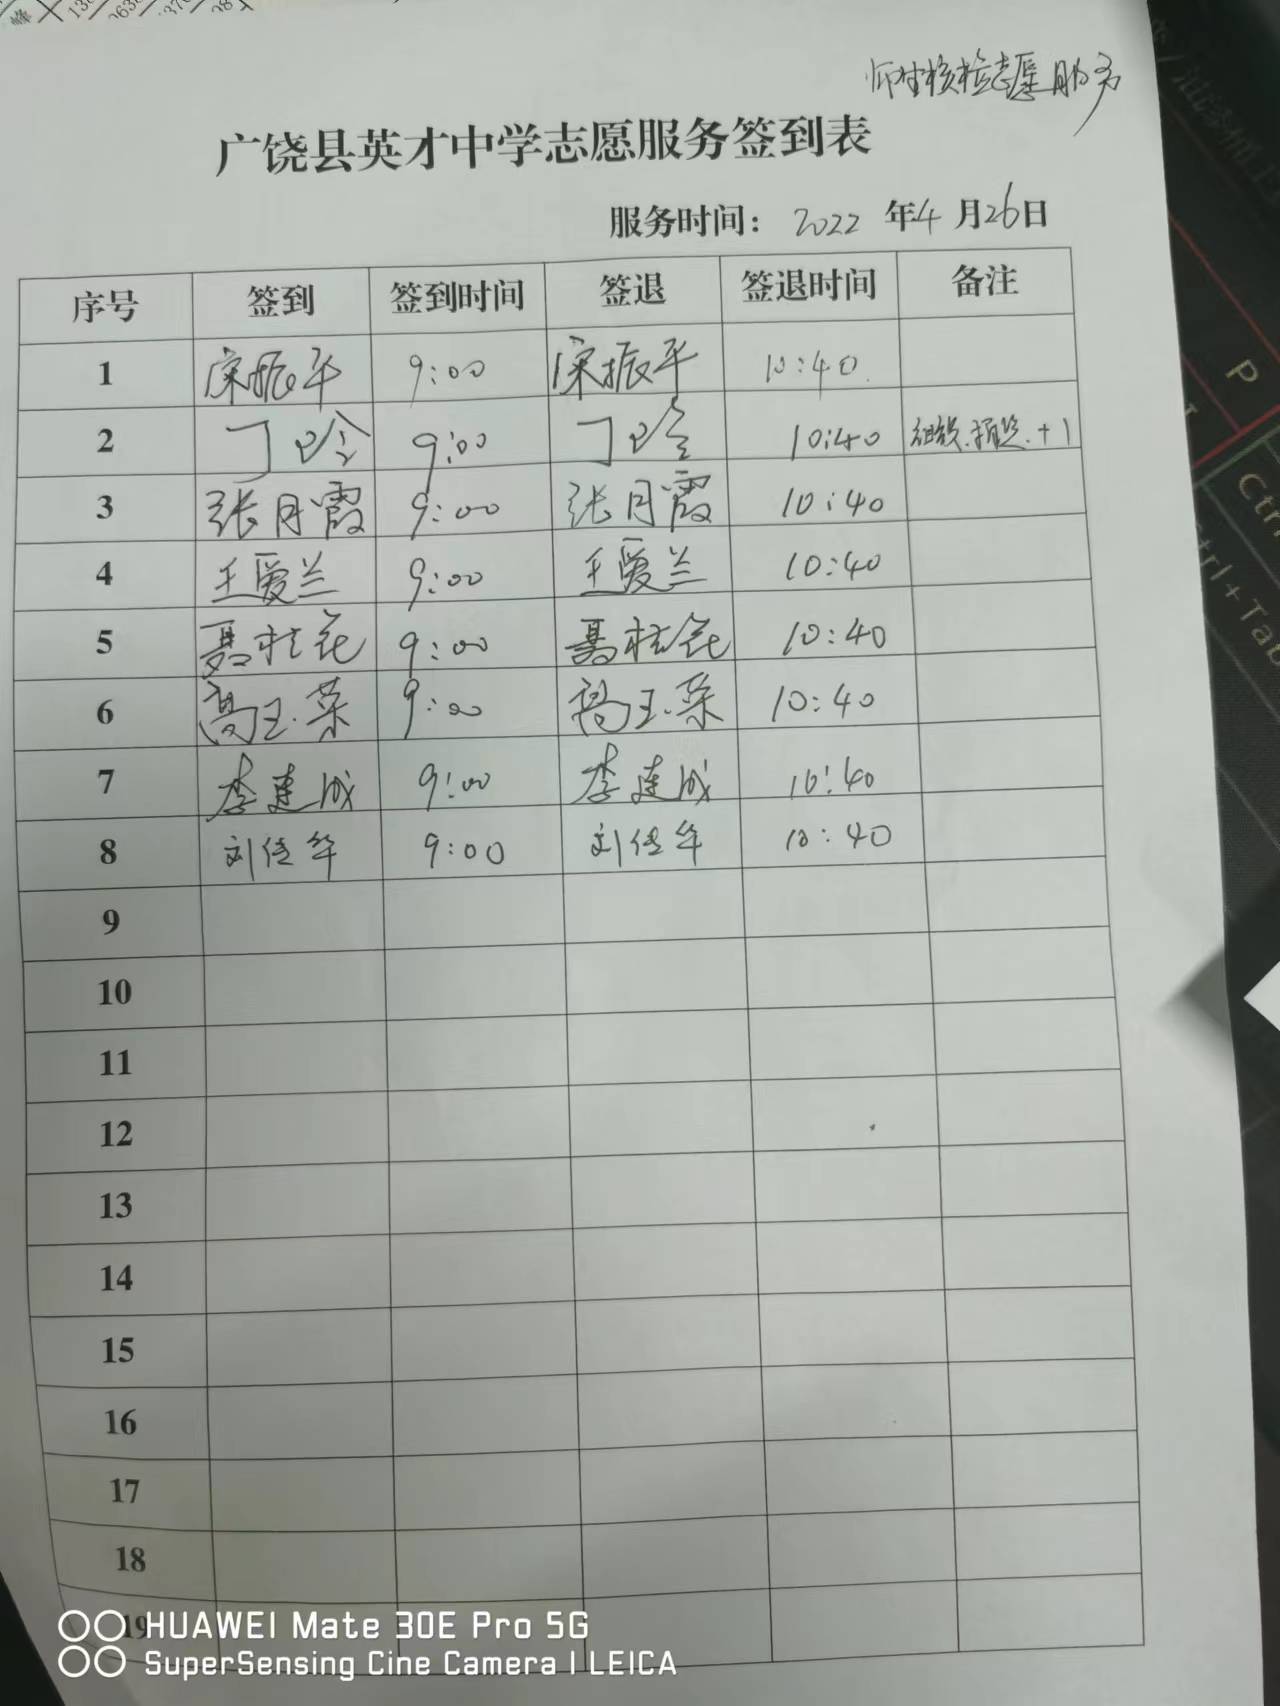 师生核检志愿服务
广饶县英才中学志愿服务签到表
服务时间： 2022 年4 月26日
序号 签到 签到时间 签退 签退时间 备注
1 宋振平 9:00 宋振平 10:40
2 丁 9:00 丁 10:40 +1
3 张月霞 9:00 张月霞 10:40
4 王爱兰 9:00 王爱兰 10:40
5 聂桂花 9:00 聂桂花 10:40
6 高玉荣 9:00 高玉荣 10:40
7 李建成 9:00 李建成 10:40
8 刘佳华 9:00 刘佳华 10:40
9
10
11
12
13
14
15
16
17
18
19
HUAWEI Mate 30E Pro 5G
SuperSensing Cine Camera | LEICA
P
Ctrl+Tab